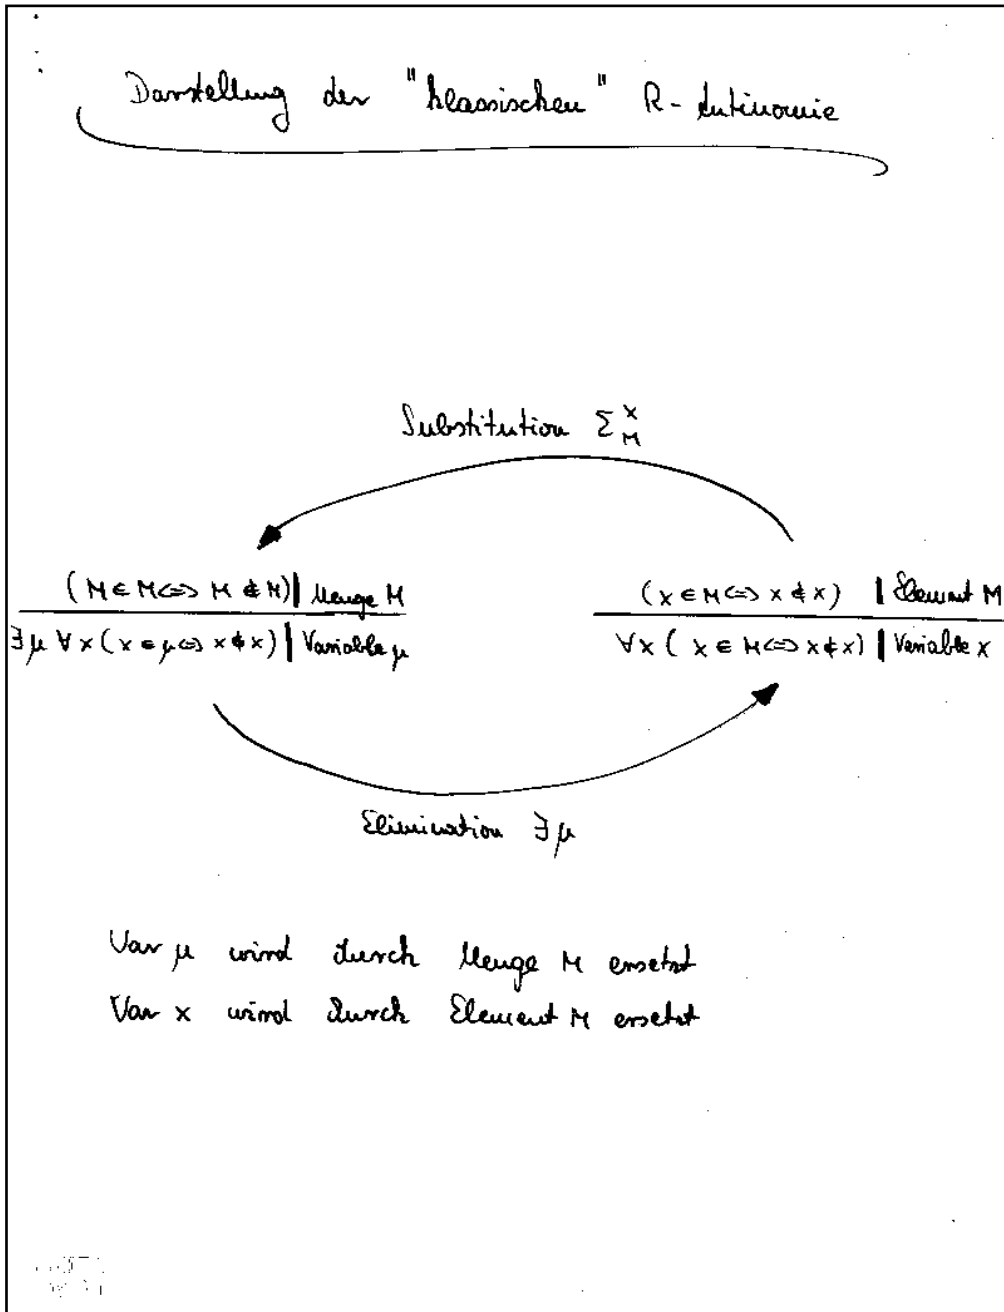 Darstellung der "klassischen" R-Antinomie
Substitution Σ x M
(M ∈ M <=> M ∉ M) | Menge M
∃μ ∀x (x ∈ μ <=> x ∉ x) | Variable μ
(x ∈ M <=> x ∉ x) | Element M
∀x (x ∈ M <=> x ∉ x) | Variable x
Elimination ∃μ
Var μ wird durch Menge M ersetzt
Var x wird durch Element M ersetzt